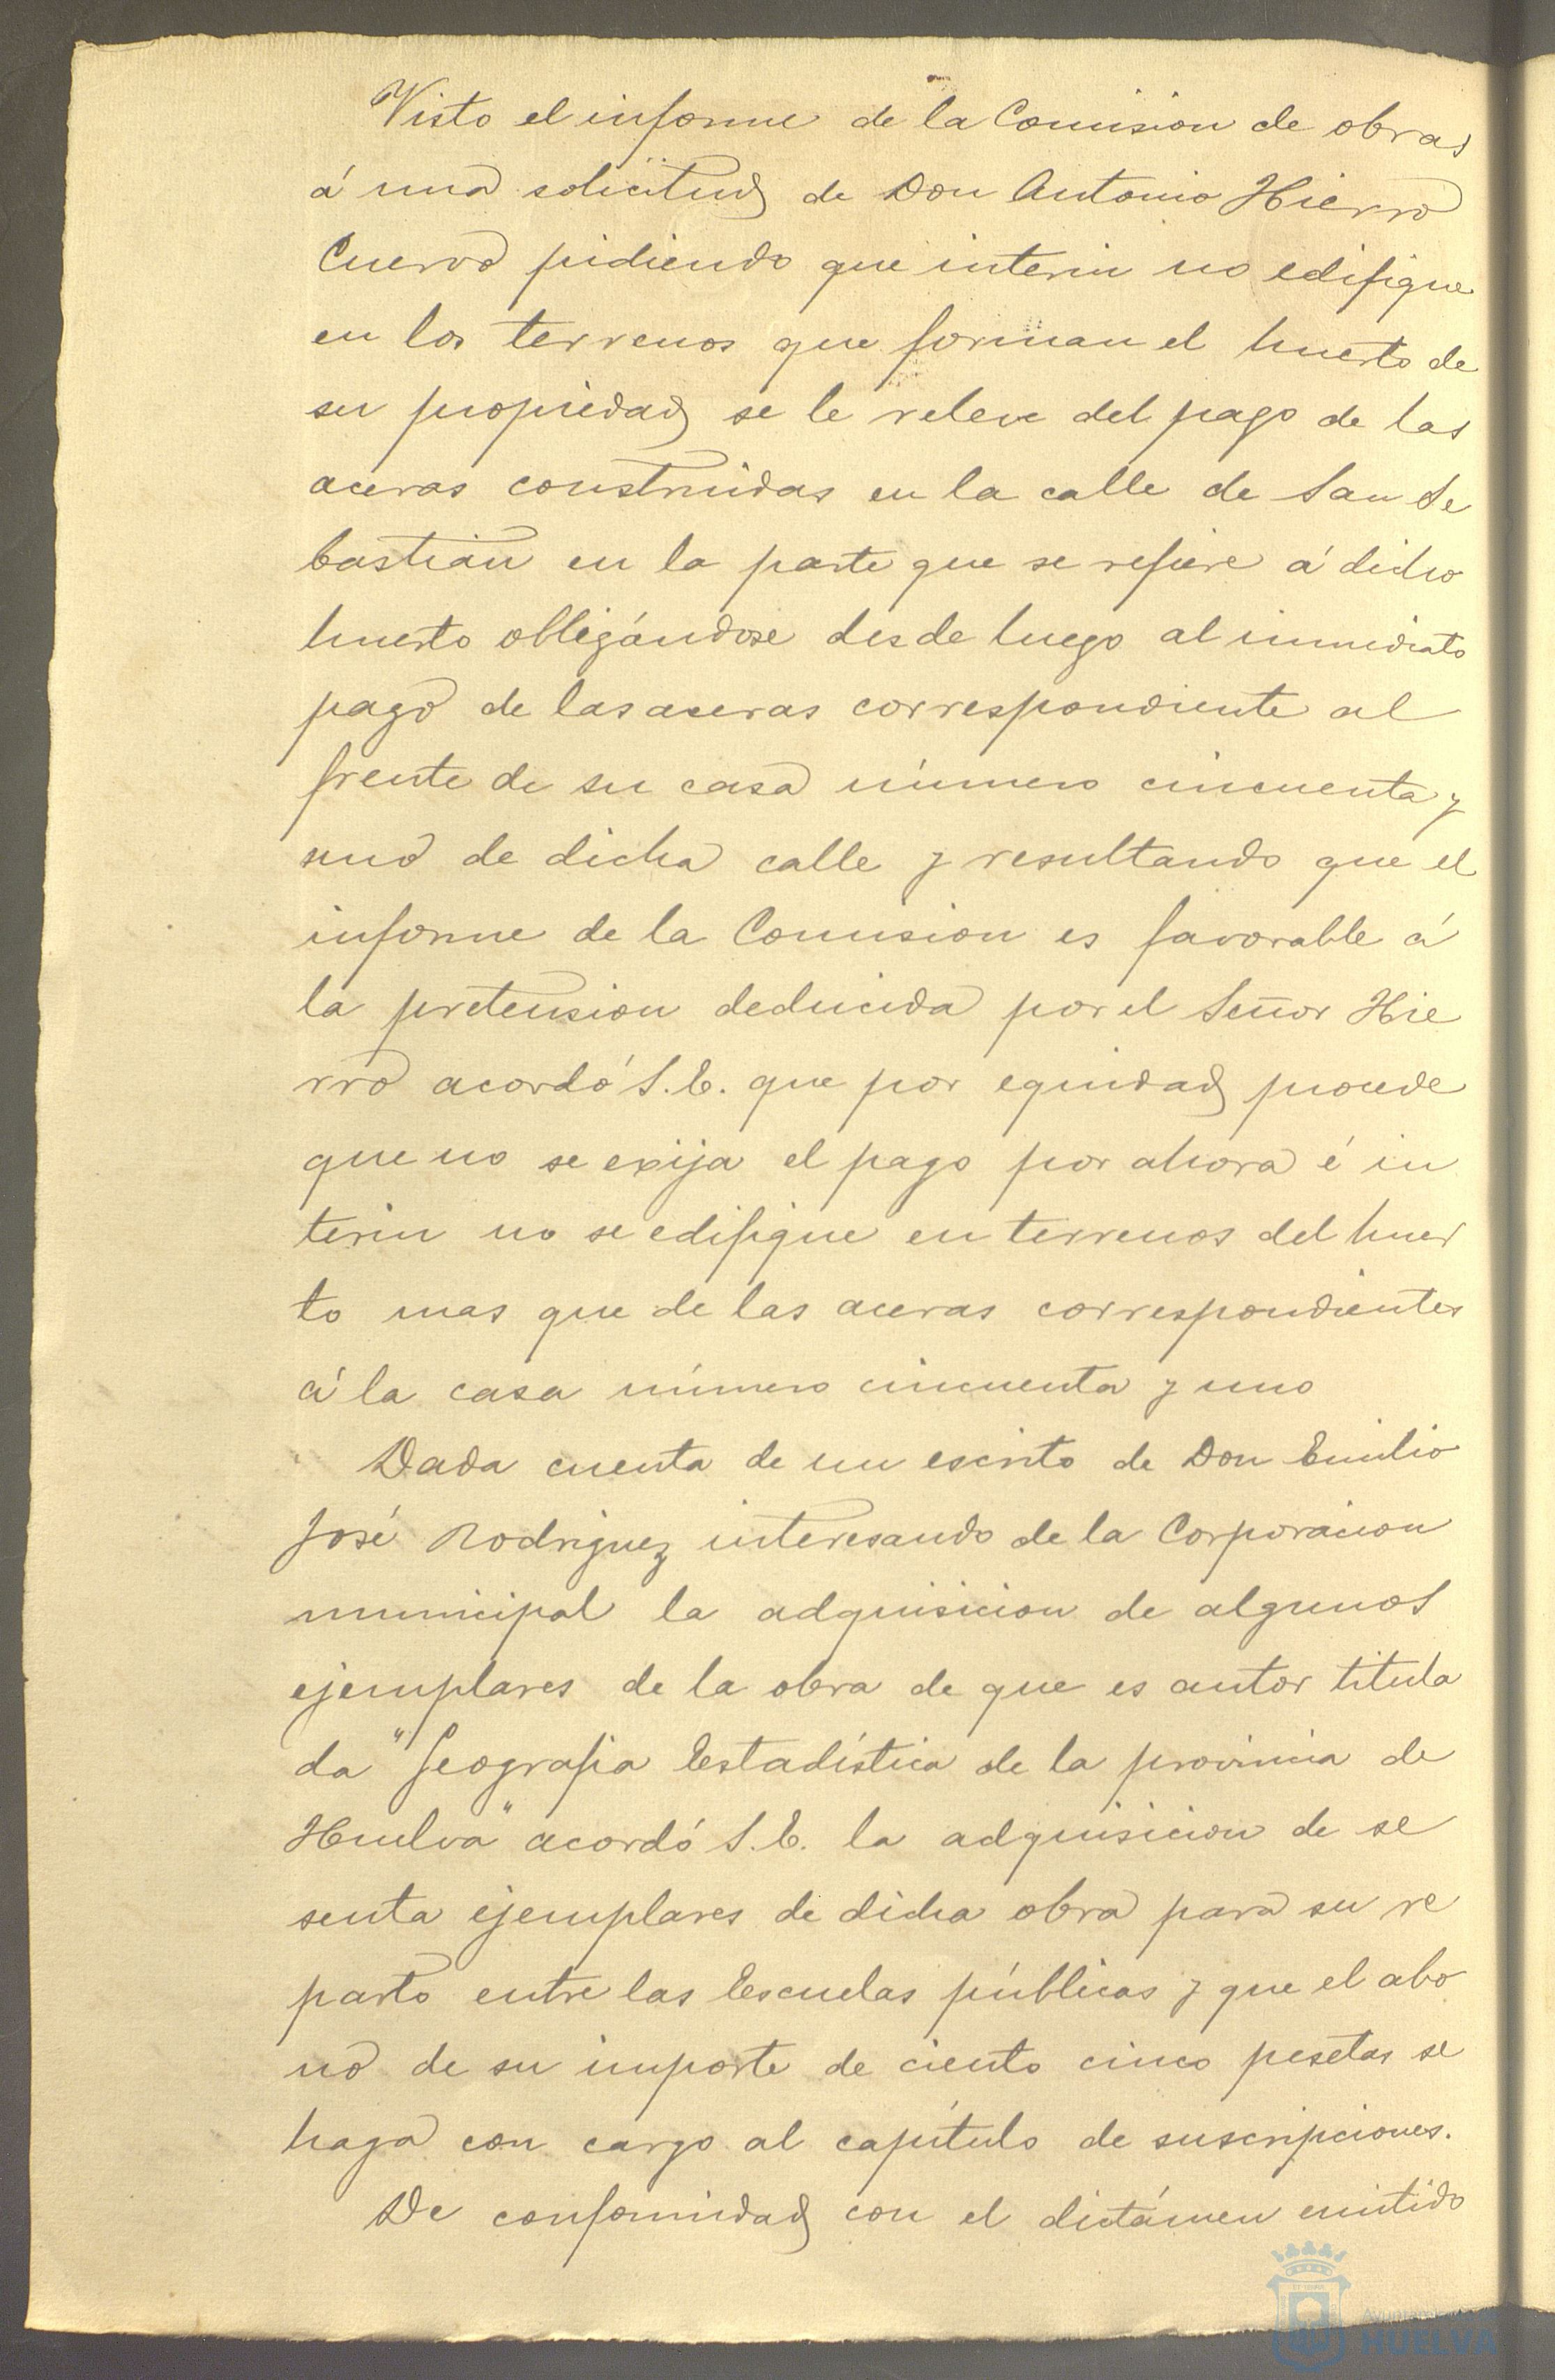 Visto el informe de la Comision de obras
á una solicitud de Don Antonio Hierro
Cuervo pidiendo que interin no edifique
en los terrenos que forman el huerto de
su propiedad se le releve del pago de las
aceras construidas en la calle de San Se
bastián en la parte que se refiere á dicho
huerto obligándose desde luego al inmediato
pago de las aceras correspondiente al
frente de su casa número cincuenta y
uno de dicha calle y resultando que el
informe de la Comision es favorable á
la pretension deducida por el Señor Hie
rro acordó S.E. que por equidad procede
que no se exija el pago por ahora é in
terin no se edifique en terrenos del huer
to mas que de las aceras correspondientes
á la casa número cincuenta y uno
Dada cuenta de un escrito de Don Emilio
José Rodriguez interesando de la Corporacion
municipal la adquisicion de algunos
ejemplares de la obra de que es autor titula
da "Geografia Estadística de la provincia de
Huelva" acordó S.E. la adquisicion de se
senta ejemplares de dicha obra para su re
parto entre las Escuelas públicas y que el abo
no de su importe de ciento cinco pesetas se
haga con cargo al capítulo de suscripciones.
De conformidad con el dictámen emitido
HUELVA